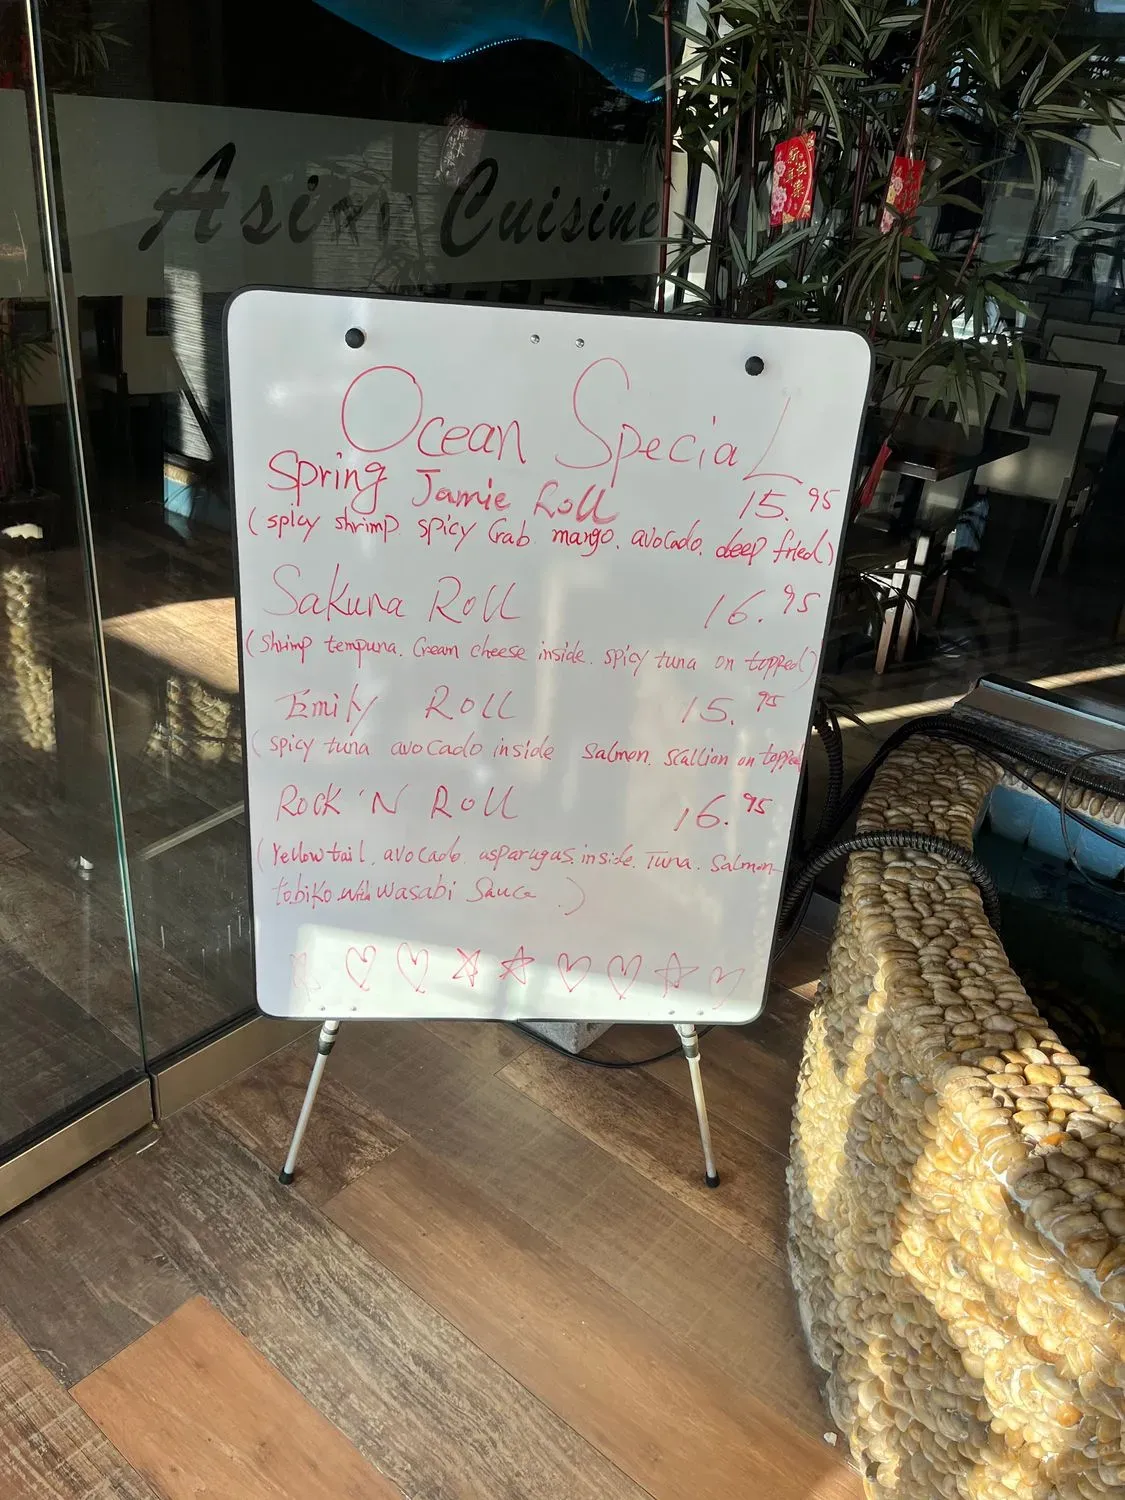 Asian Cuisine
新年快樂
Ocean Special
Spring Jamie Roll 15.95
(spicy shrimp. spicy Crab. mango. avocado. deep fried)
Sakura Roll 16.95
(shrimp tempura. Cream cheese inside. spicy tuna on topped)
Emily Roll 15.95
(spicy tuna avocado inside salmon. scallion on topped
Rock 'N Roll 16.95
(Yellow tail. avocado. asparagus. inside. Tuna. Salmon.
tobiko with wasabi Sauce.)